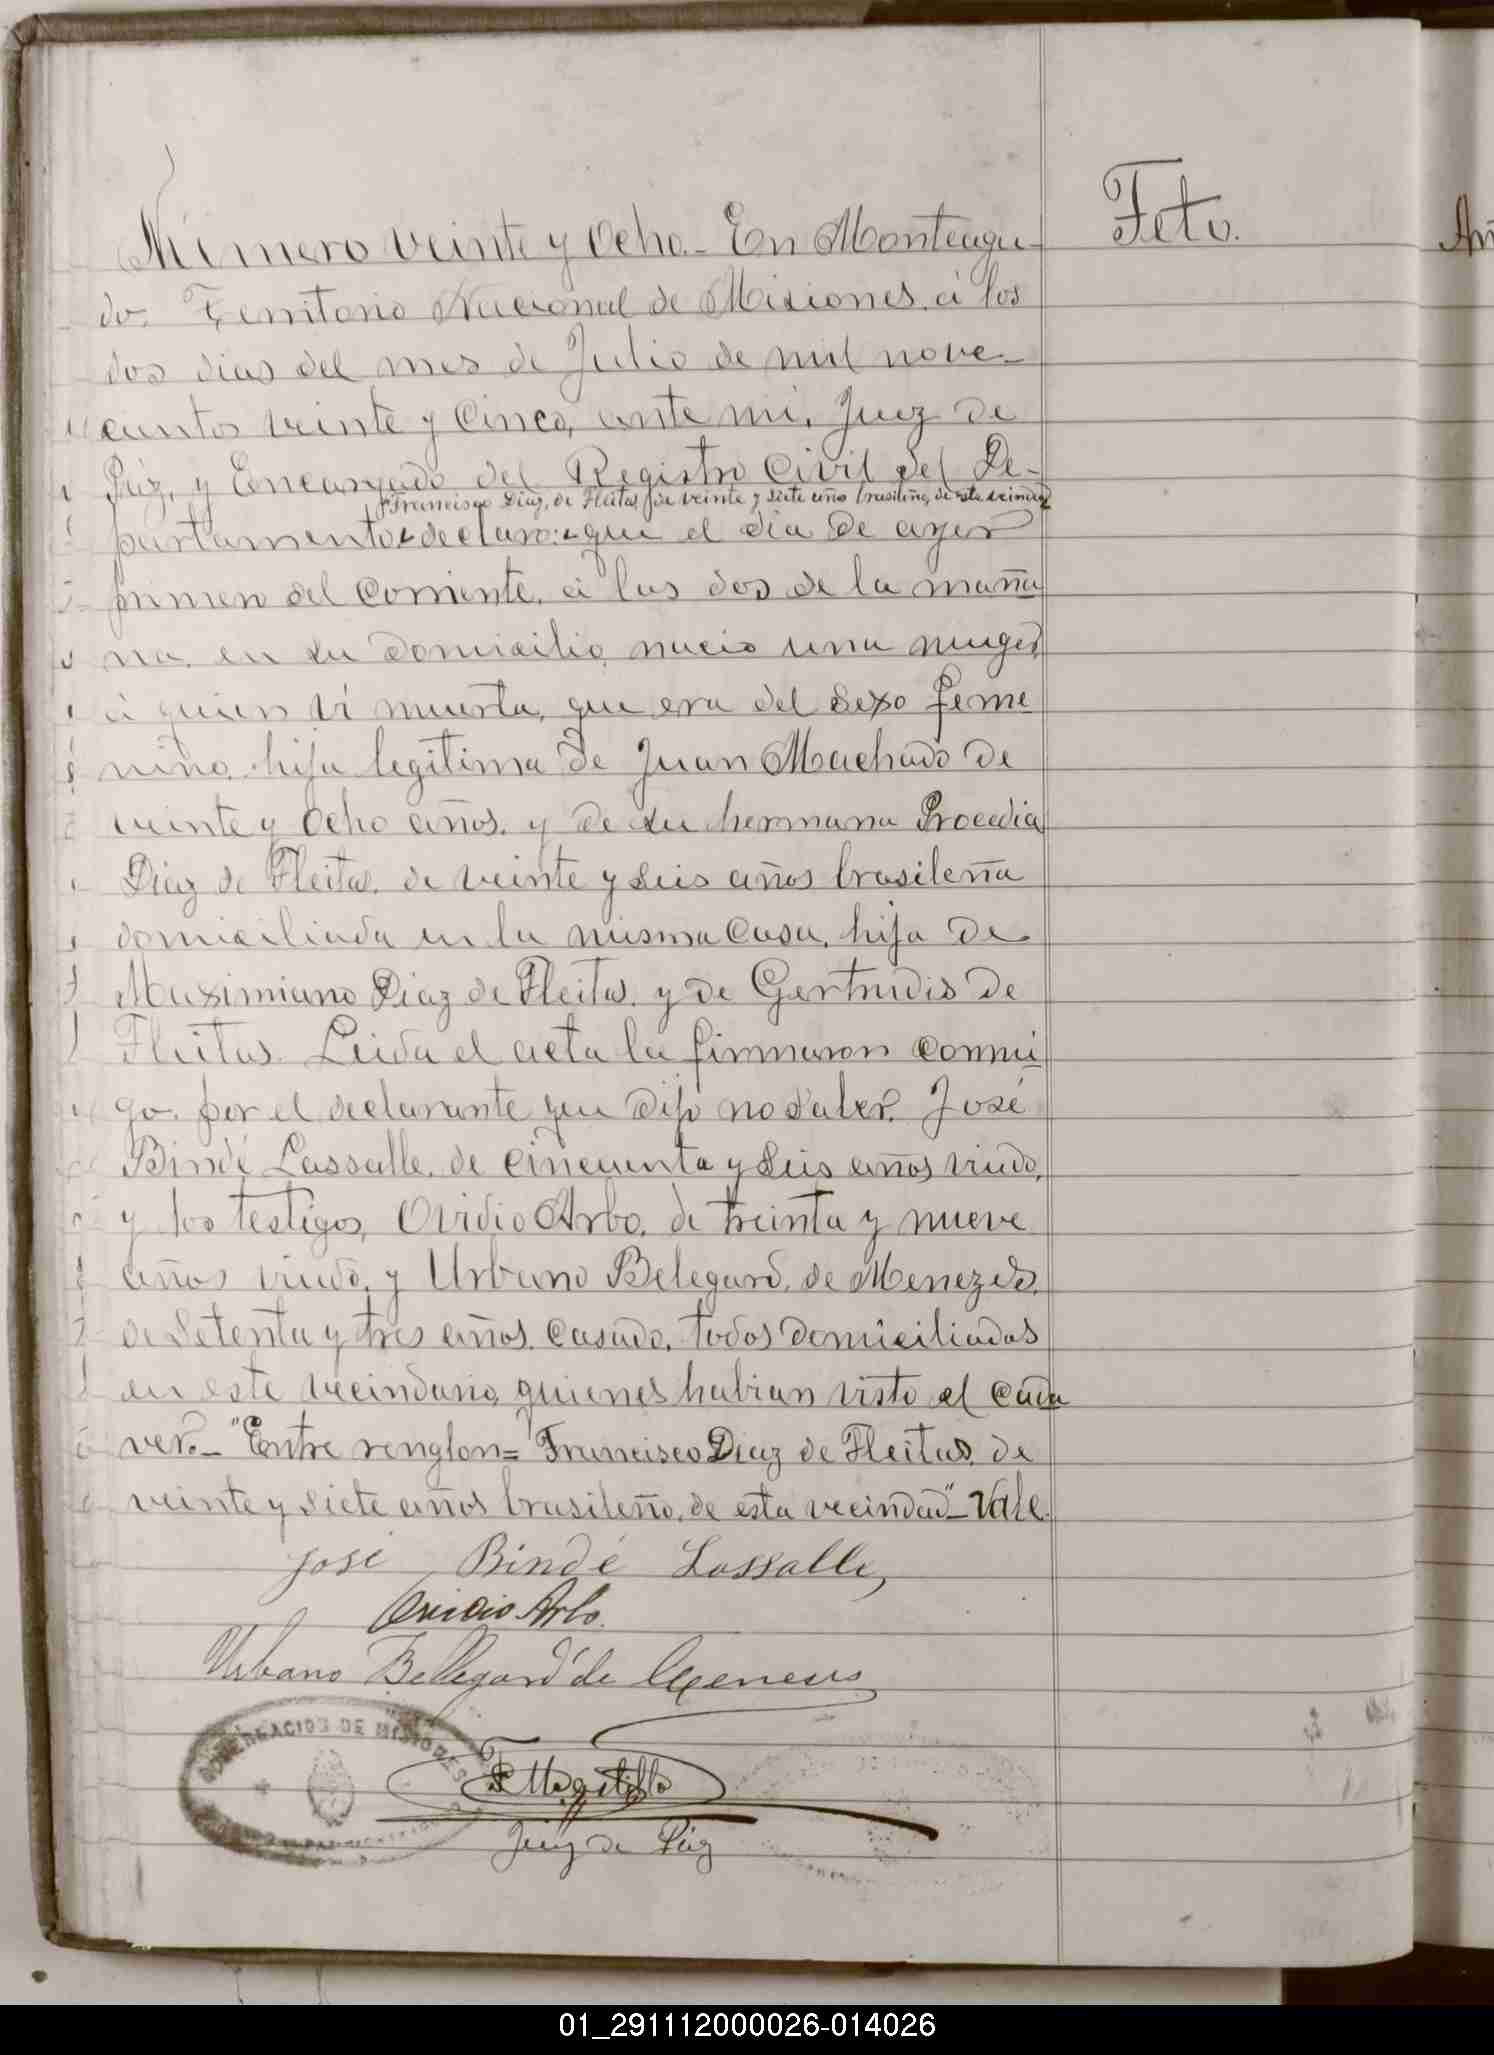 Feto.
Número veinte y Ocho.- En Monteagu-
do, Territorio Nacional de Misiones, á los
dos dias del mes de Julio de mil nove-
cientos veinte y Cinco, ante mi, Juez de
Páz, y Encargado del Registro Civil del De-
Francisco Diaz, de Fleitas, de veinte y siete año brasileño, de esta vecindad
partamento declaro: que el dia de ayer
primero del Corriente, á las dos de la maña
na, en su domicilio, nacio una muger
á quien vi muerta, que era del sexo feme
nino, hija legitima de Juan Machado de
veinte y Ocho años, y de su hermana Procedia
Diaz de Fleitas, de veinte y seis años brasileña
domiciliada en la misma Casa, hija de
Maximiano Diaz de Fleitas, y de Gertrudis de
Fleitas. Leida el acta la firmaron conmi
go, por el declarante que dijo no saber, José
Bindé Lassalle, de cincuenta y seis años viudo,
y los testigos, Ovidio Arbo, de treinta y nueve
años viudo, y Urbano Belegard, de Menezes,
de setenta y tres años, casado, todos domiciliados
en este vecindario, quienes habian visto el Cada
ver.- "Entre renglon= Francisco Diaz de Fleitas, de
veinte y siete años brasileño, de esta vecindad"- Vale.
José Bindé Lassalle,
Ovidio Arbo.
Urbano Bellegard de Meneses
GOBERNACION DE MISIONES
Juez de Páz
01_291112000026-014026